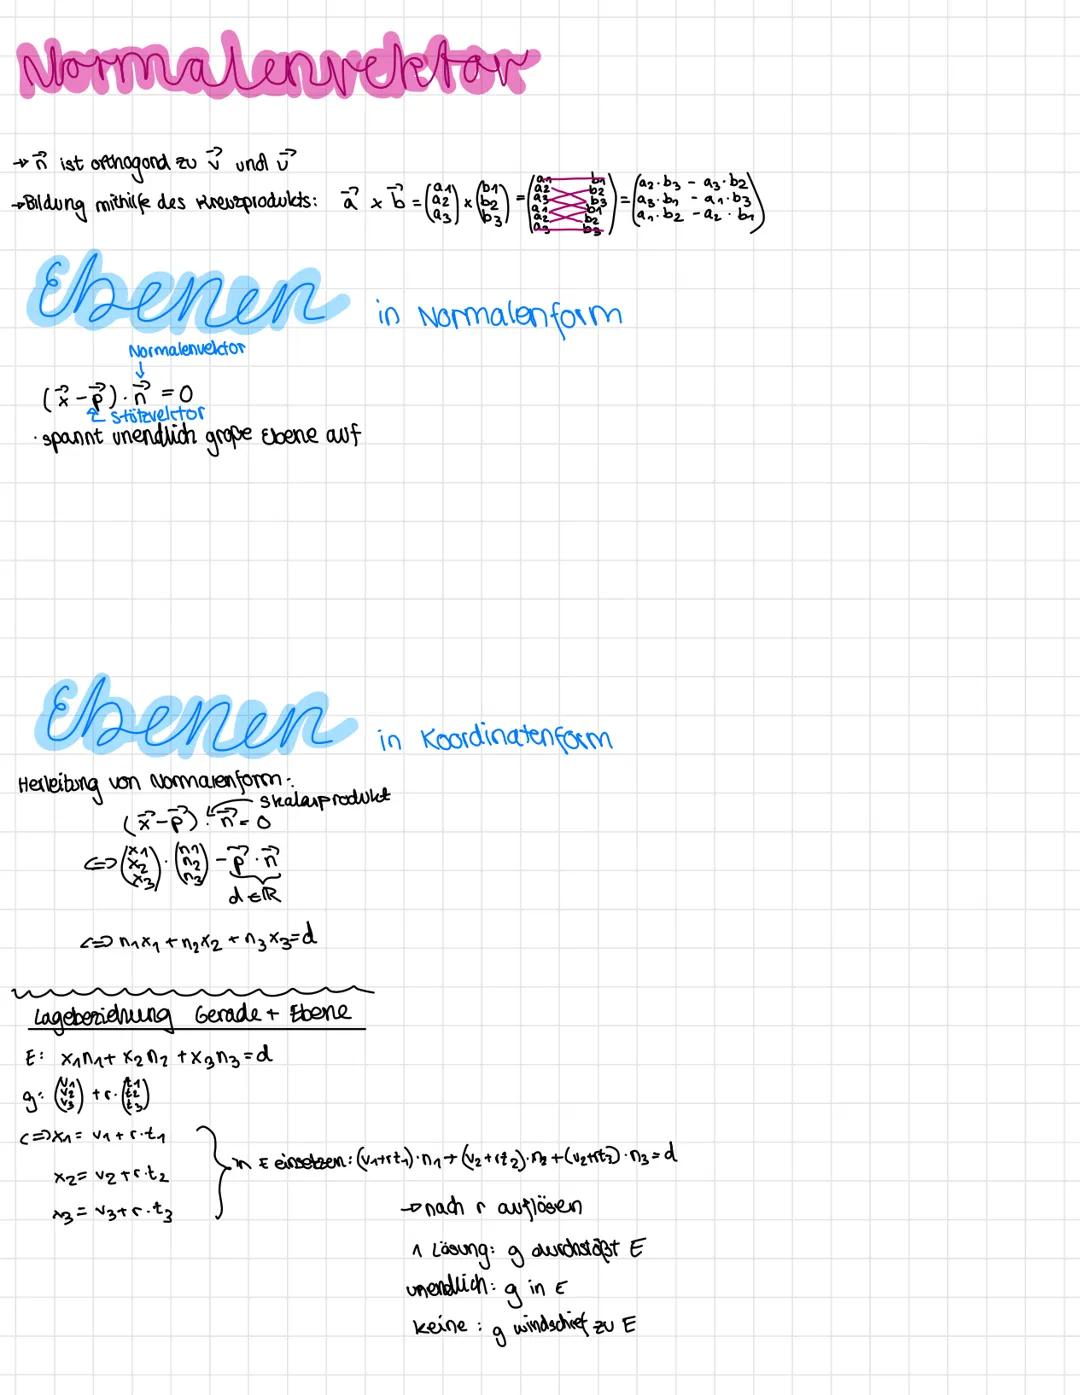 Normalenvektor
→ n⃗ ist orthogonal zu v⃗ und u⃗
→ Bildung mithilfe des Kreuzprodukts: a⃗ × b⃗ = (a1 a2 a3) × (b1 b2 b3) = (a1 a2 a3 a1 a2 a3 b1 b2 b3 b1 b2 b3) = (a2·b3 - a3·b2 a3·b1 - a1·b3 a1·b2 - a2·b1)
Ebenen in Normalenform
Normalenvektor
(x⃗ - p⃗) · n⃗ = 0
Stützvektor
· spannt unendlich große Ebene auf
Ebenen in Koordinatenform
Herleitung von Normalenform:
Skalarprodukt
(x⃗ - p⃗) · n⃗ = 0
<=> (x1 x2 x3) · (n1 n2 n3) - p⃗ · n⃗
d ∈ ℝ
<=> n1x1 + n2x2 + n3x3 = d
Lagebeziehung Gerade + Ebene
E: x1n1 + x2n2 + x3n3 = d
g: (v1 v2 v3) + r · (t1 t2 t3)
<=> x1 = v1 + r·t1
x2 = v2 + r·t2
x3 = v3 + r·t3
in E einsetzen: (v1+rt1)·n1 + (v2+rt2)·n2 + (v2+rt3)·n3 = d
→ nach r auflösen
1 Lösung: g durchstößt E
unendlich: g in E
keine: g windschief zu E